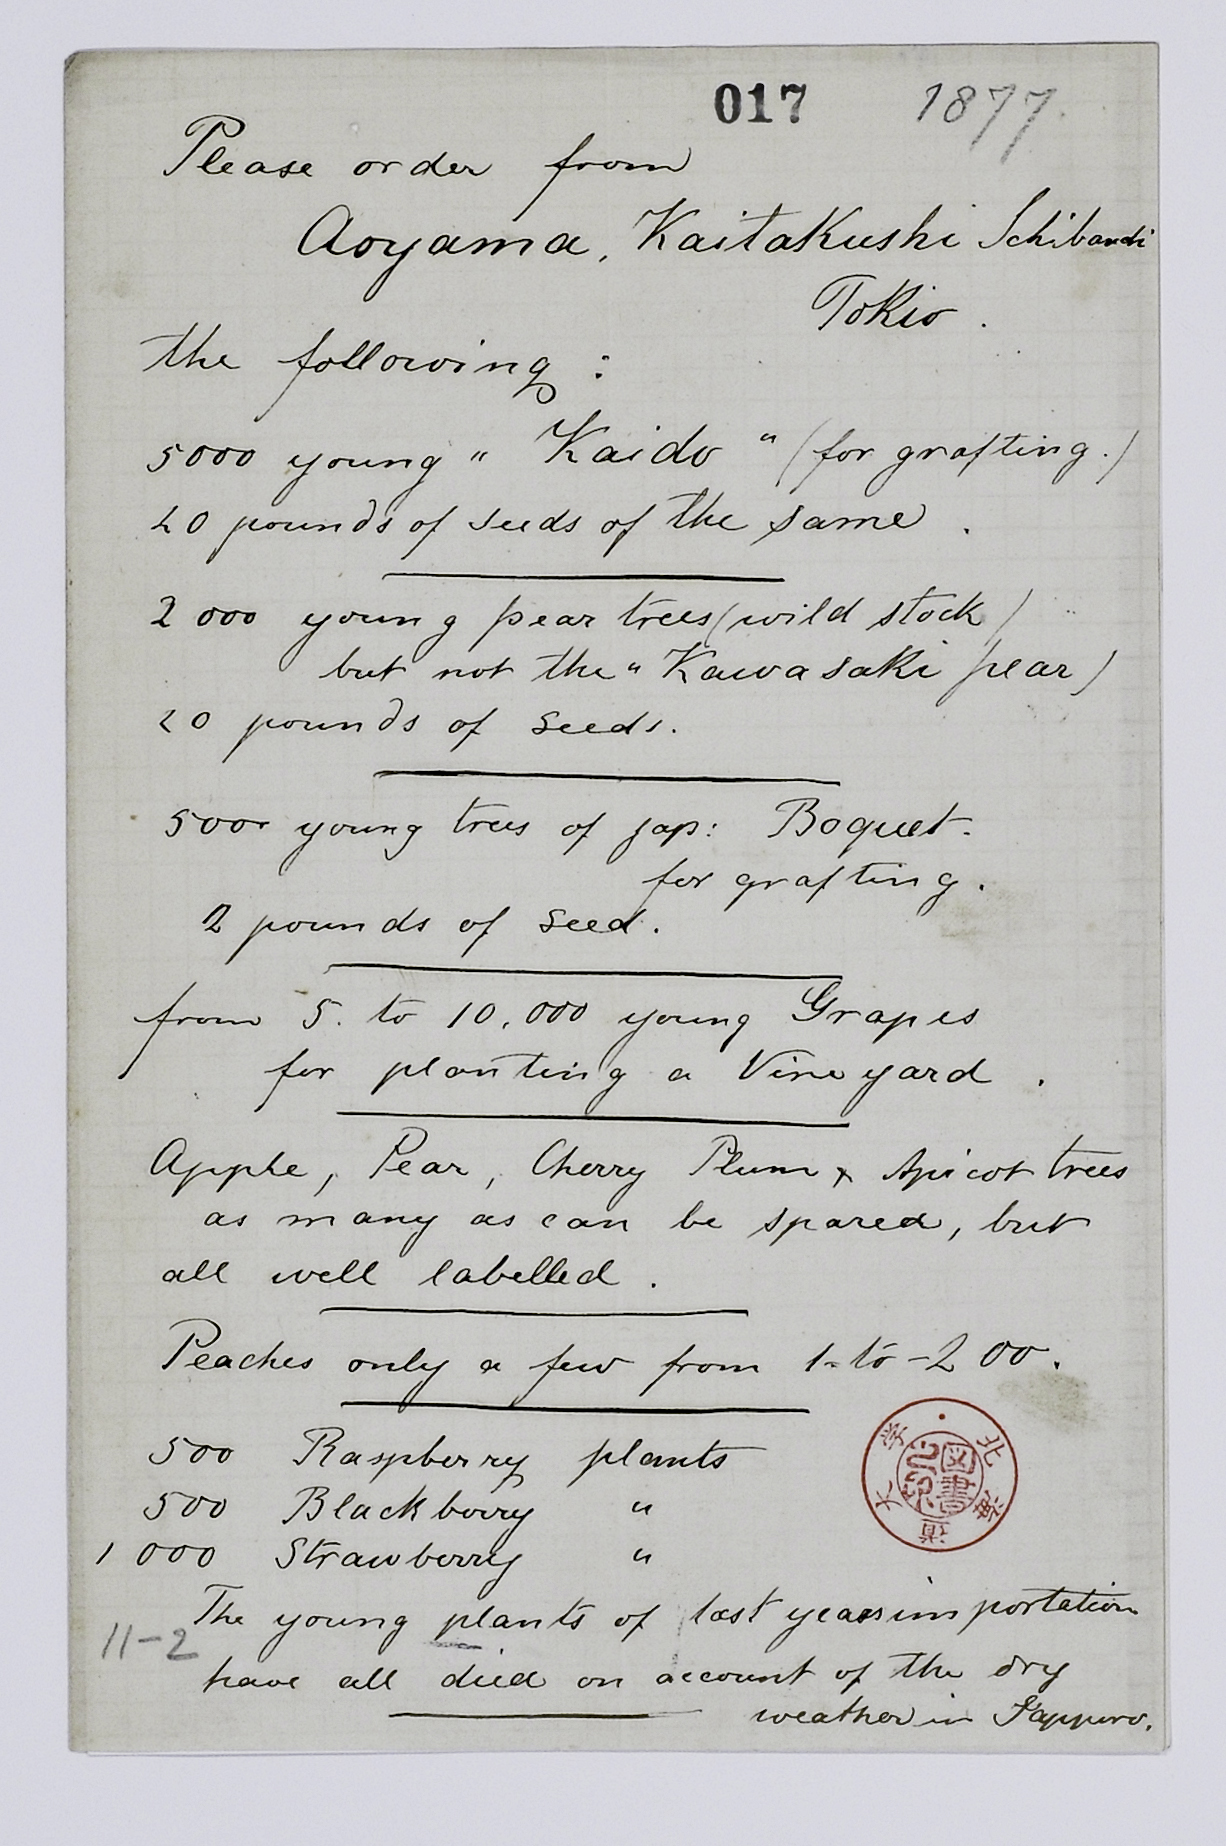 017 1877.
Please order from
Aoyama, Kaitakushi Ichibanchi
Tokio.
the following:
5000 young "Kaido" (for grafting.)
20 pounds of seeds of the same.
2000 young pear trees (wild stock)
but not the "Kawasaki pear)
20 pounds of seeds.
5000 young trees of jap: Boquet.
for grafting.
2 pounds of seed.
from 5. to 10,000 young Grapes
for planting a Vineyard.
Apple, Pear, Cherry Plum & Apicot trees
as many as can be spared, but
all well labelled.
Peaches only a few from 1-to-200.
500 Raspberry plants
500 Blackberry "
1000 Strawberry "
北海道大学
図書
The young plants of last years importation
11-2
have all died on account of the dry
weather in Sapporo.